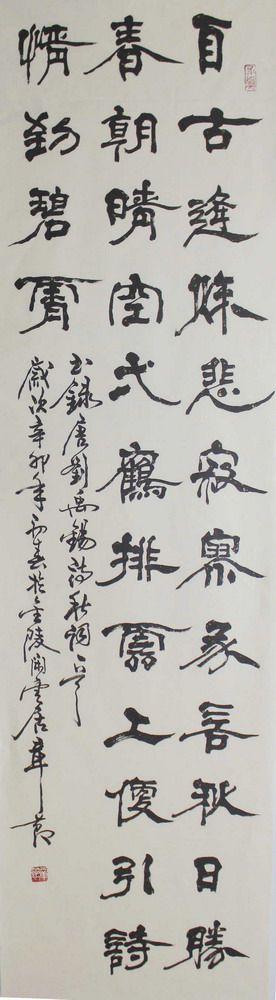 自古逢秌悲寂寥我言秋日勝
春朝晴空弌鶴排雲上便引詩
情到碧霄
書錄唐劉禹錫詩秋詞一首
歲次辛卯年初春於金陵閒雲居